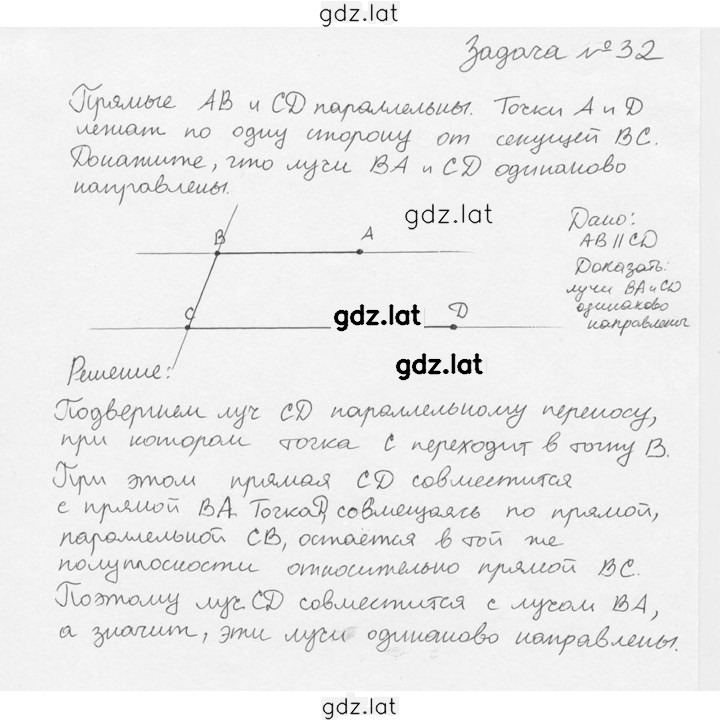 gdz.lat
Задача №32
Прямые AB и CD параллельны. Точки A и D
лежат по одну сторону от секущей BC.
Докажите, что лучи BA и CD одинаково
направлены.
gdz.lat
B A
Дано:
AB || CD
Доказать:
лучи BA и CD
одинаково
направлены
C gdz.lat D
gdz.lat
Решение:
Подвергнем луч CD параллельному переносу,
при котором точка C переходит в точку B.
При этом прямая CD совместится
с прямой BA. Точка D, совмещаясь по прямой,
параллельной CB, остаётся в той же
полуплоскости относительно прямой BC.
Поэтому луч CD совместится с лучом BA,
а значит, эти лучи одинаково направлены.
gdz.lat